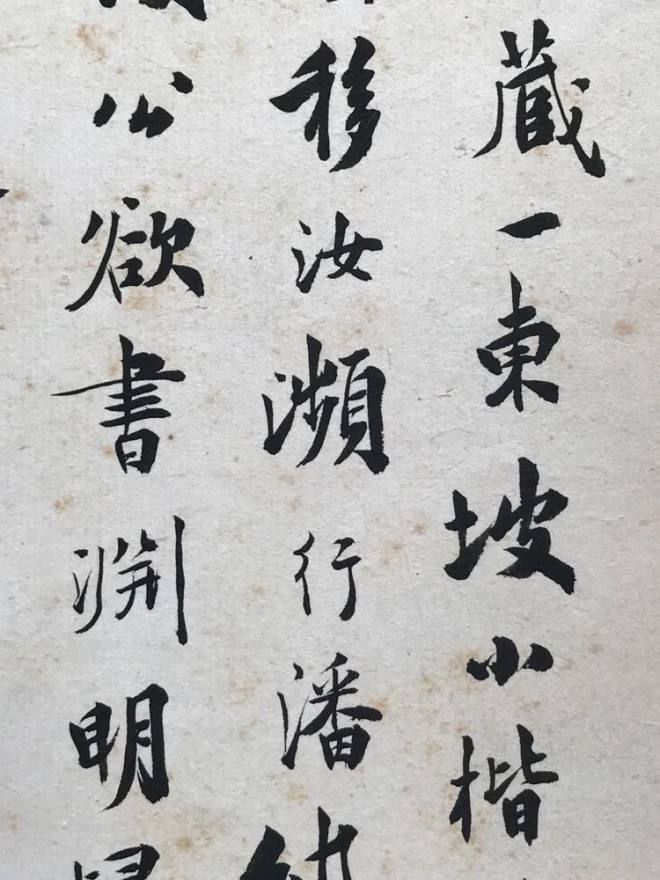 藏一東坡小楷
移汝瀕行潘
公欲書淵明